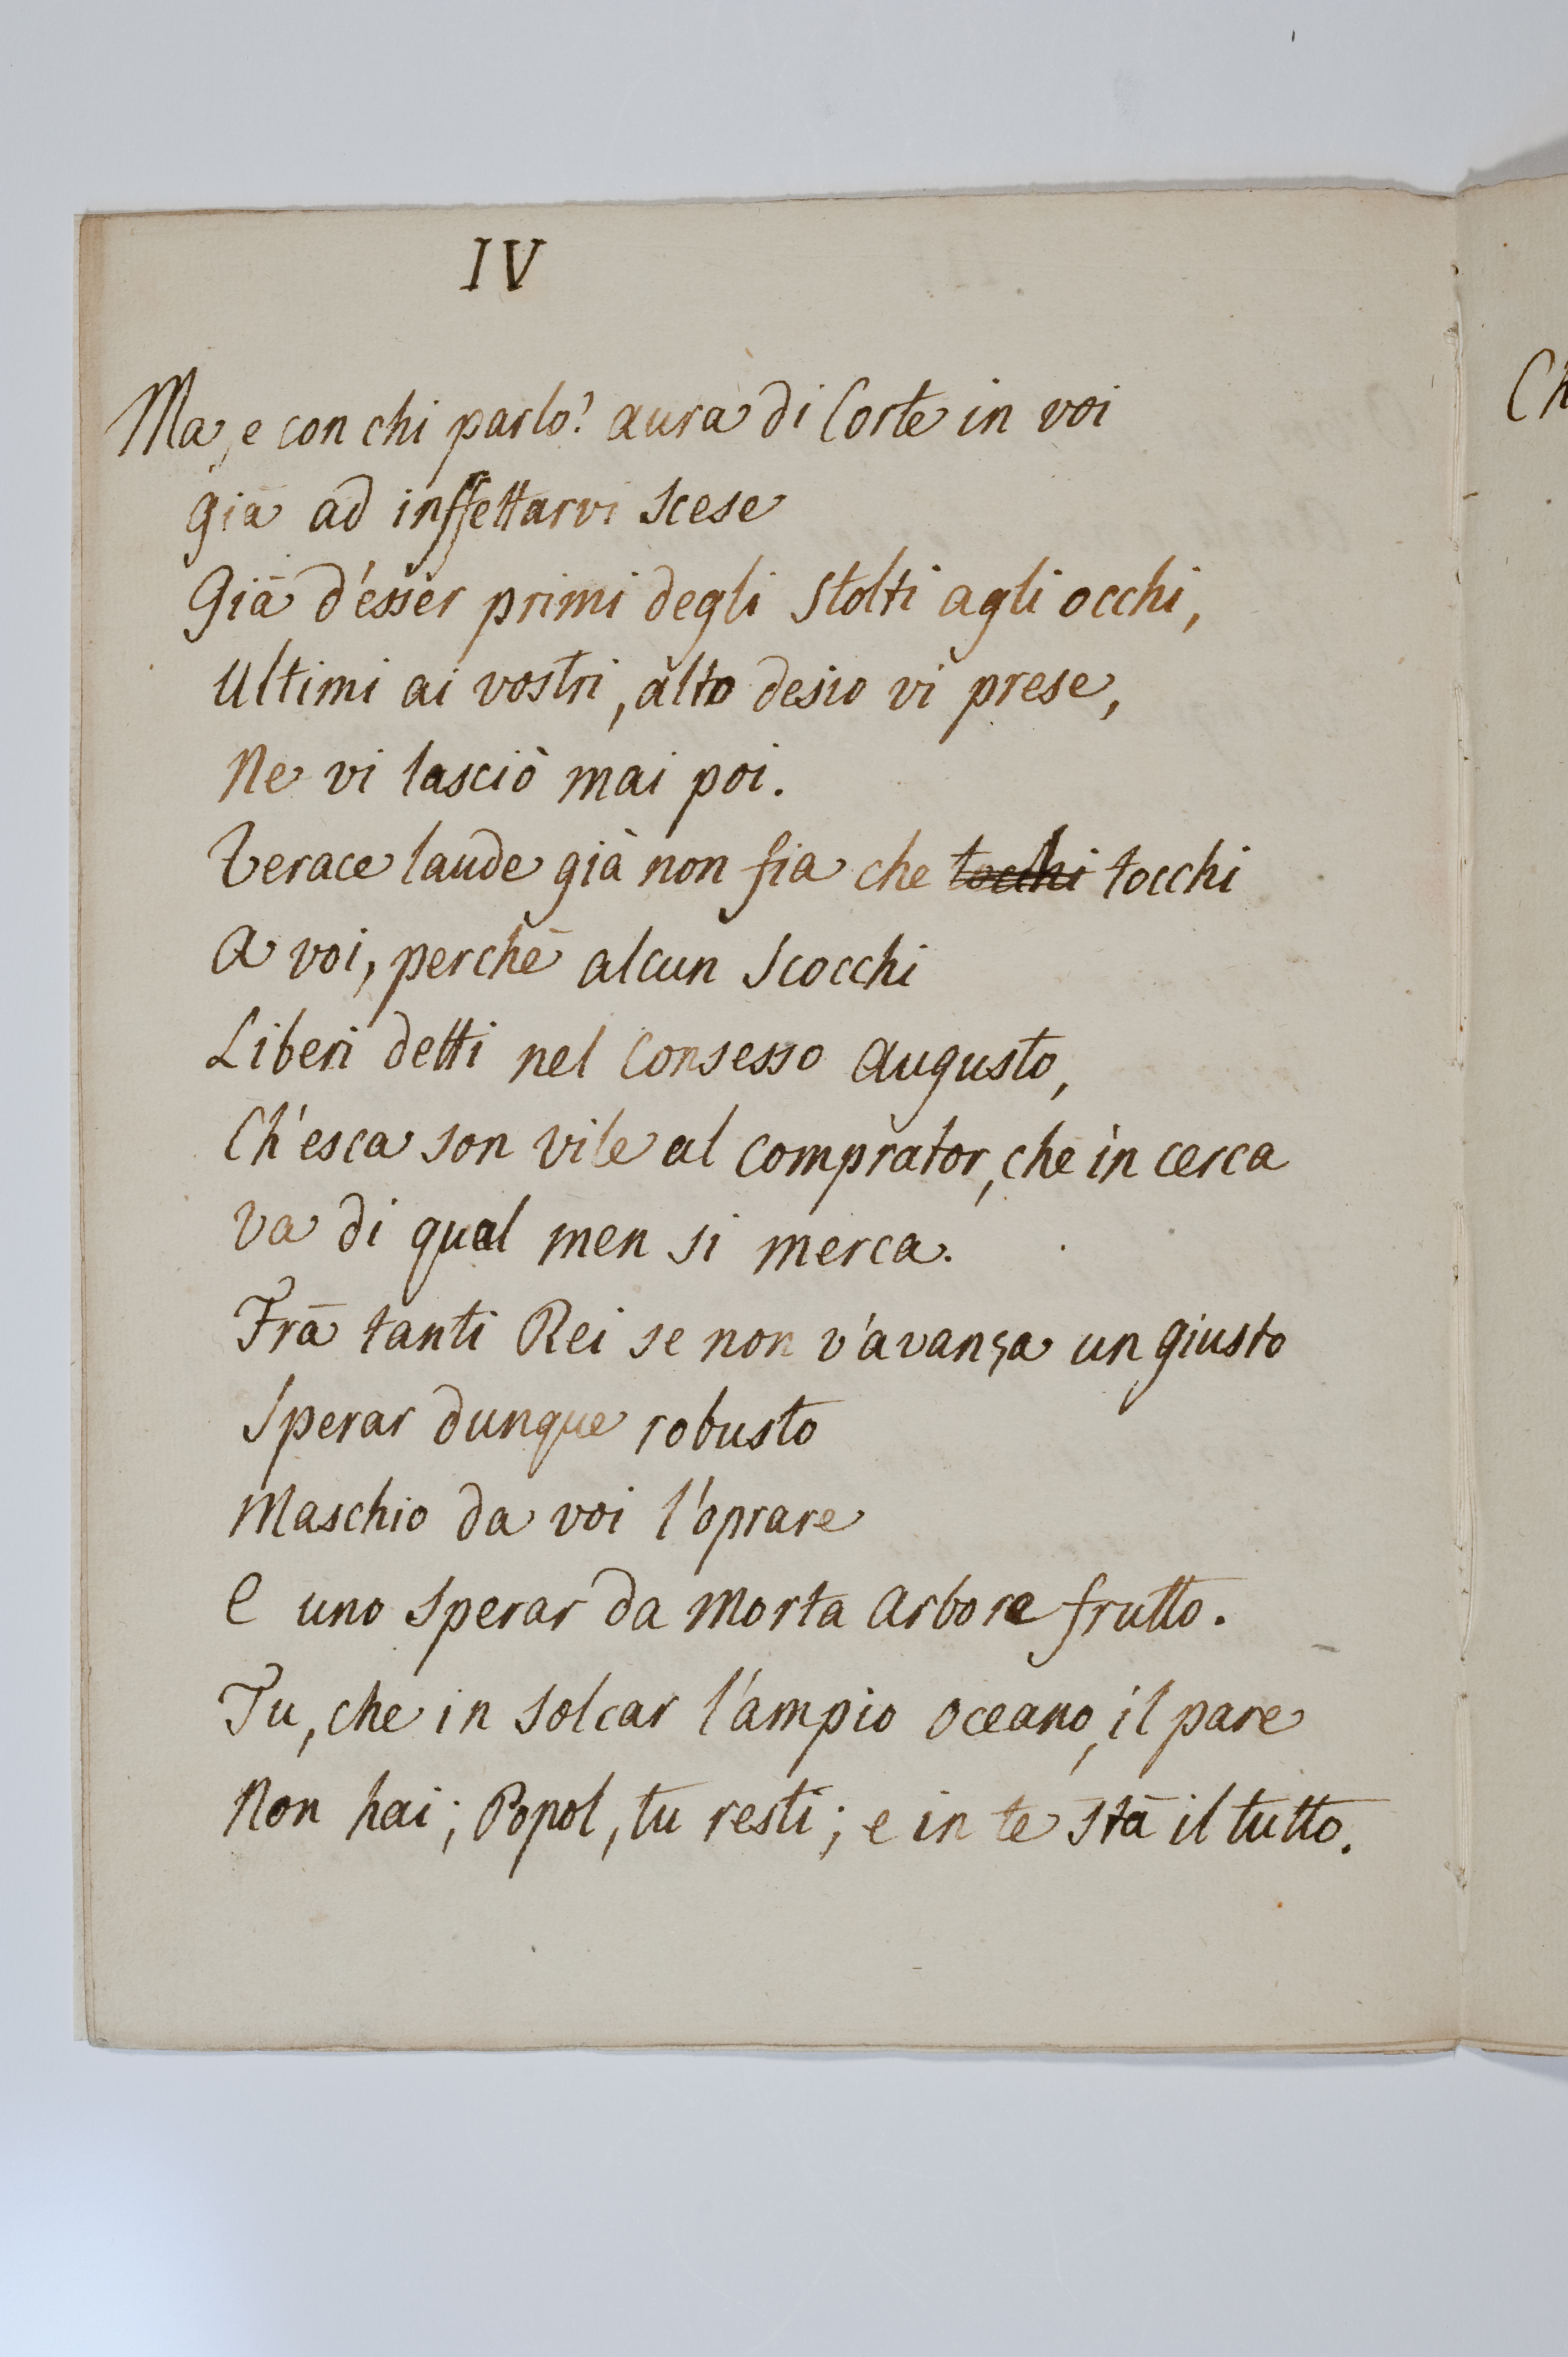 IV
Ma, e con chi parlo? aura di Corte in voi
già ad inffettarvi scese
Già d'esser primi degli stolti agli occhi,
Ultimi ai vostri, alto desio vi prese,
Ne vi lasciò mai poi.
Verace laude già non fia che ~~tocchi~~ tocchi
A voi, perchè alcun scocchi
Liberi detti nel Consesso Augusto,
Ch'esca son vile al comprator, che in cerca
Va di qual men si merca.
Frà tanti Rei se non v'avanza un giusto
Sperar dunque robusto
Maschio da voi l'oprare
E uno sperar da morta arbore frutto.
Tu, che in solcar l'ampio oceano, il pare
Non hai; Popol, tu resti; e in te stà il tutto.
Ch